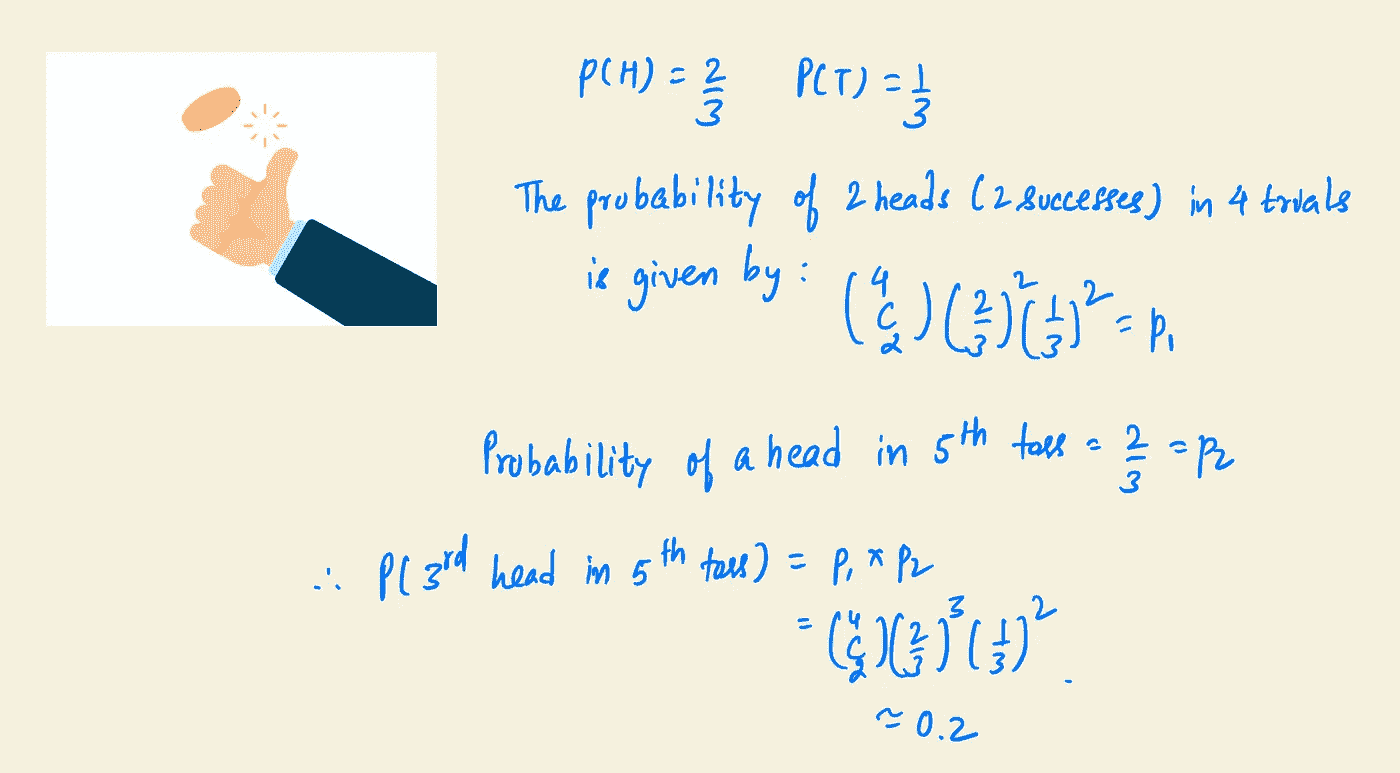 P(H) = 2/3 P(T) = 1/3
The probability of 2 heads (2 successes) in 4 trials
is given by : (4C2)(2/3)²(1/3)² = p₁
Probability of a head in 5th toss = 2/3 = p₂
∴ P(3rd head in 5th toss) = p₁ × p₂
= (4C2)(2/3)³(1/3)².
≈ 0.2